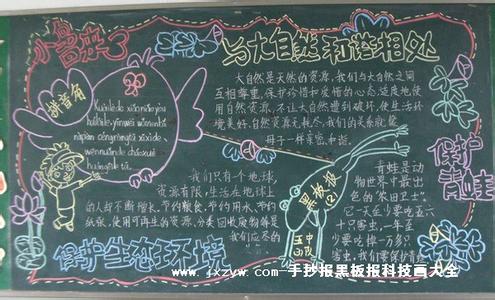 小鸟来了
与大自然和谐相处
拼音角
大自然是天然的资源,我们与大自然之间
互相尊重,保护珍惜和爱惜的心态度地使
用自然资源,不让大自然遭到破坏,使生活环
境美好,自然资源无耗尽,我们的关系就能
母子一样亲密,和谐。
我们只有个地球,
资源有限,生活在地球上
的人却不断增长,节约粮食,节约用水,节约
纸张,使用可再生的资源,分类回收废物等是
我们应尽的
保护生态环境
黑板报
(2)
保护
青蛙
青蛙是动
物世界中最出
色的“农田卫士”
它一天至少要吃五六
十只害虫,一年至
少要吃掉一万多只
害虫,我们要保护青蛙
www.jxzyw.com 手抄报黑板报科技画大全